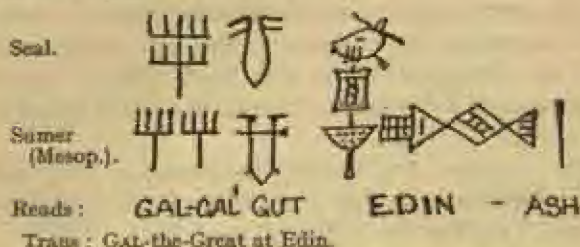 Seal.
Sumer
(Mesop.).
Reads: GAL-GAL GUT EDIN - ASH
Trans: GAL-the-Great at Edin.